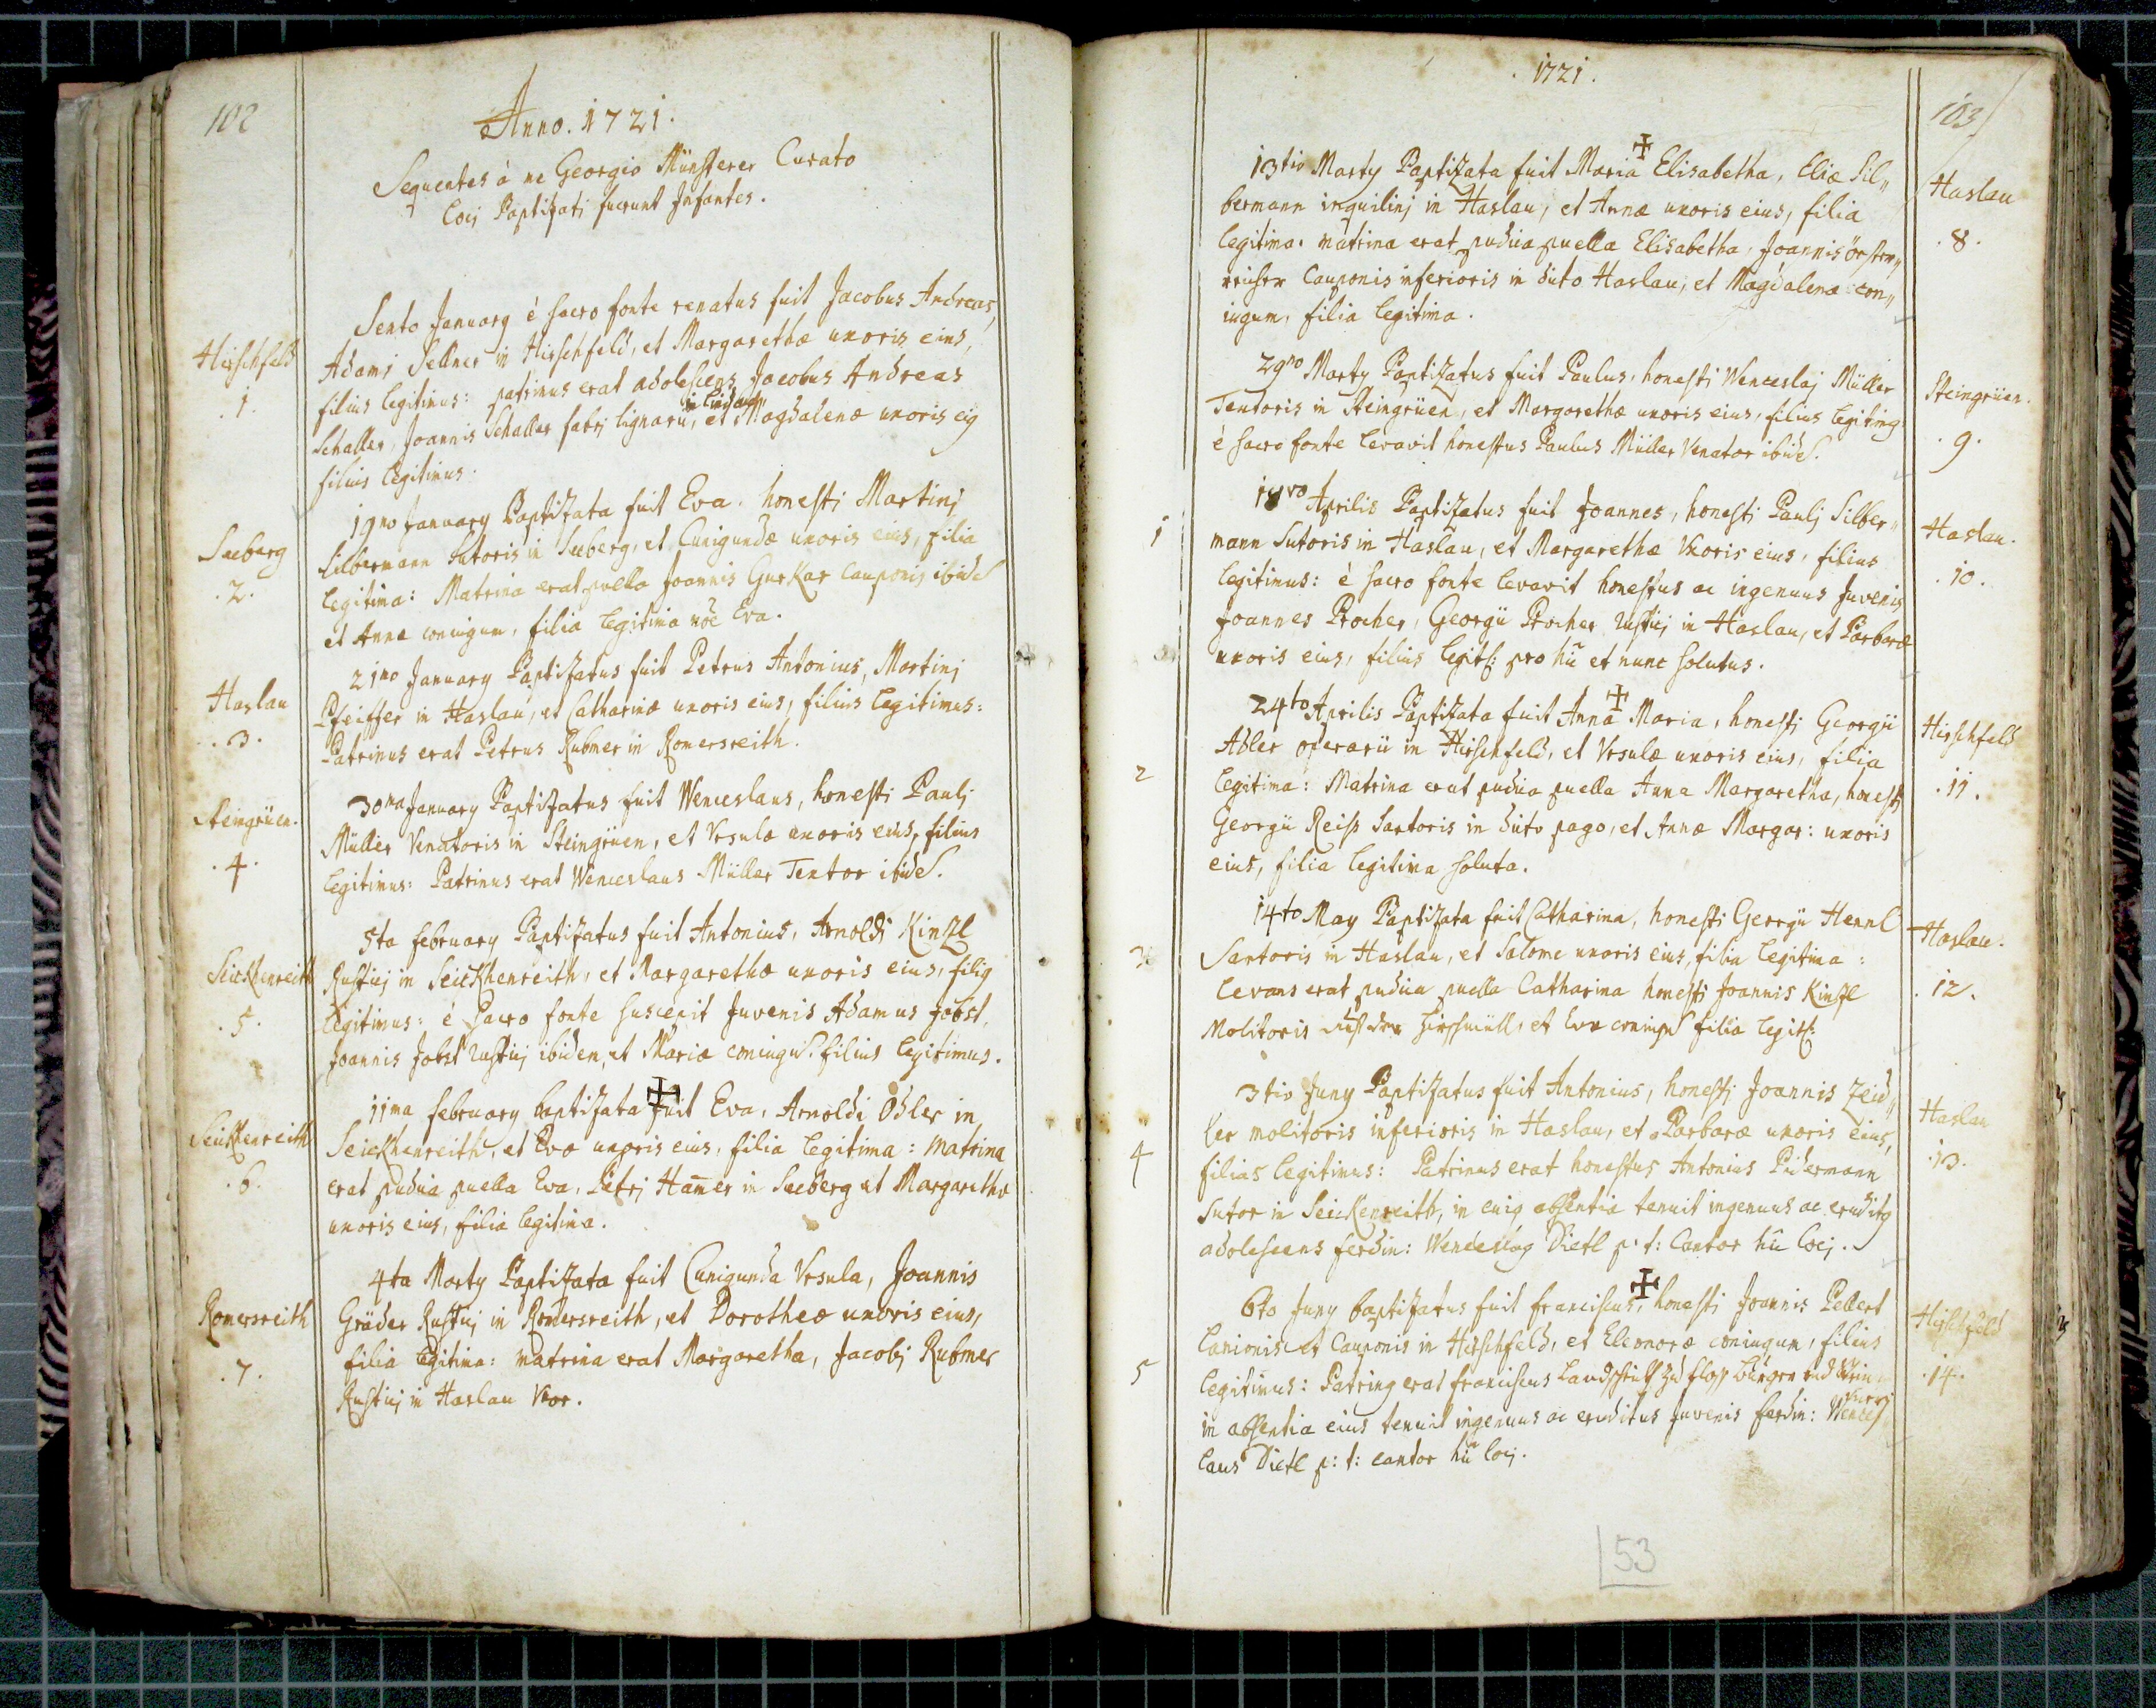 102
Anno. 1721.
Sequentes à me Georgio Münsterer Curato
Locj Baptizati fuerunt Infantes.
Hirschfeld
.1.
Sexto January è sacro fonte renatus fuit Jacobus Andreas,
Adami Sellner in Hirschfeld, et Margarethæ uxoris eius,
filius legitimus: patrinus erat adolescens Jacobus Andreas
Schaller, Joannis Schaller fabrj lignarii, et Magdalenæ uxoris ei9
filius legitimus.
Seeberg
.2.
19no January Baptizata fuit Eva. honesti Martinj
Silbermann Sutoris in Seeberg, et Cunigundæ uxoris eius, filia
legitima: Matrina erat puella Joannis Gurkar Cauponis ibid
et Annæ coniugum, filia legitima nōe Eva.
Haslau
.3.
21mo January Baptizatus fuit Petrus Antonius, Martinj
Pfeiffer in Haslau, et Catharinæ uxoris eius, filius legitimus:
Patrinus erat Petrus Rubner in Romersreith.
Steingrüen.
.4.
30ma January Baptizatus fuit Wenceslaus, honesti Paulj
Müller Venatoris in Steingrüen, et Vrsulæ uxoris eius, filius
legitimus: Patrinus erat Wenceslaus Müller Textor ibid.
Seickhenreith
.5.
5ta february Baptizatus fuit Antonius, Arnoldi Kinzl
Rusticj in Seickhenreith, et Margarethæ uxoris eius, fili9
legitimus: è sacro fonte suscepit Juvenis Adamus Jobst,
Joannis Jobst rusticj ibidem, et Mariæ coniugu. filius legitimus.
Seickhenreith
.6.
11ma february baptizata fuit Eva, Arnoldi Adler in
Seickhenreith, et Evæ uxoris eius, filia legitima: matrina
erat pudica puella Eva, Petrj Ham̄er in Seeberg et Margarethæ
uxoris eius, filia legitima.
Romersreith
.7.
4ta Marty Baptizata fuit Cunigunda Vrsula, Joannis
Gräder Rusticj in Romersreith, et Dorotheæ uxoris eius,
filia legitima: matrina erat Margaretha, Jacobj Rubner
Rusticj in Haslau Vxor.
1721.
103
Haslau
.8.
13tio Marty Baptizata fuit Maria Elisabetha, Eliæ Sil„
bermann inquilinj in Haslau, et Annæ uxoris eius, filia
legitima. matrina erat pudica puella Elisabetha, Joannis
Cauponis inferioris in dicto Haslau, et Magdalenæ con„
iugum, filia legitima.
Steingrüen.
.9.
29no Marty Baptizatus fuit Paulus, honesti Wenceslaj Müller
Textoris in Steingrüen, et Margarethæ uxoris eius, filius legitim9
è sacro fonte levavit honestus Paulus Müller Venator ibid.
Haslau.
.10.
1
18vo Aprilis Baptizatus fuit Joannes, honesti Paulj Silber„
mann Sutoris in Haslau, et Margarethæ Vxoris eius, filius
legitimus: è sacro fonte levavit honestus ac ingenuus Juvenis
Joannes Procher, Georgii Procher rusticj in Haslau, et Barbaræ
uxoris eius, filius legit: pro hic et nunc solutus.
Hirschfeld
.11.
2
24to Aprilis Baptizata fuit Anna Maria, honesti Georgii
Adler operarii in Hirschfeld, et Vrsulæ uxoris eius, filia
legitima: Matrina erat pudica puella Anna Margaretha, honesti
Georgii Reiß Sartoris in dicto pago, et Annæ Margar: uxoris
eius, filia legitima soluta.
Haslau.
.12.
3
14to May Baptizata fuit Catharina, honesti Georgii Hennl
Sartoris in Haslau, et Salome uxoris eius, filia legitima:
levans erat pudica puella Catharina honesti Joannis Kinzl
Molitoris et Evæ coniugum filia legit:
Haslau
.13.
4
3tio Juny Baptizatus fuit Antonius, honesti Joannis Zeid„
ler molitoris inferioris in Haslau, et Barbaræ uxoris eius,
filius legitimus: Patrinus erat honestus Antonius Pidermann
Sutor in Seickenreith, in cui9 absentia tenuit ingenuus ac erudit9
adolescens ferdin: Wenceslaus Dietl p: t: Cantor hui9 locj.
Hirschfeld
.14.
5
6to Juny baptizatus fuit franciscus, honesti Joannis Pellert
Lanionis et Cauponis in Hirschfeld, et Eleonoræ coniugum, filius
legitimus: Patrin9 erat franciscus
in absentia eius tenuit ingenuus ac eruditus Juvenis ferdin: Wences„
laus Dietl p: t: cantor hui9 locj.
53